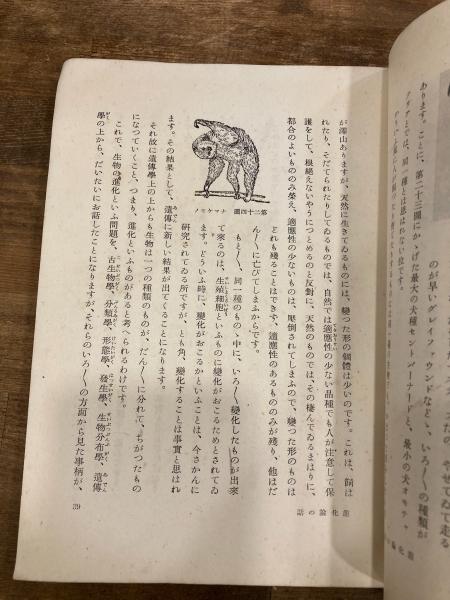 のが早いグレイフハウンドなど、いろ〱の種類が
あります。ことに、第二十三圖にかゝげた最大の犬種セントバーナードと、最小の犬
は、同一種とは思はれない位です。
進化論の話
が澤山ありますが、天然に生きてゐるものには、變つた形の個體は少いのです。これは、飼は
れたり、そだてられたりしてゐるものでは、自然では適應性の少ない品種でも人が注意して保
護をして、根絕えないやうにつとめるのと反對に、天然のものでは、その棲んでゐるまはりに、
都合のよいもののみ榮え、適應性の少ないものは、壓倒されてしまふので、變つた形のものは
どれも殘ることはできず、適應性のあるもののみが殘り、他はだ
ん〱に亡びてしまふからです。
もと〱、同一種のものゝ中に、いろ〱變化したものが出來
て來るのは、生殖細胞といふものに變化がおこるためとされてゐ
ます。どういふ時に、變化がおこるかといふことは、今さかんに
研究されてゐる所ですが、とも角、變化することは事實と思はれ
第二十四圖 ナマケモノ
ます。その結果として、遺傳に新しい結果が出てくることになります。
それ故に遺傳學上の上からも生物は一つの種類のものが、だん〱に分れて、ちがつたもの
になつていくこと、つまり、進化といふものがあると考へられるわけです。
これで、生物の進化といふ問題を、古生物學、分類學、形態學、發生學、生物分布學、遺傳
學の上から、だいたいにお話したことになりますが、それらのいろ〱の方面から見た事柄が、
39